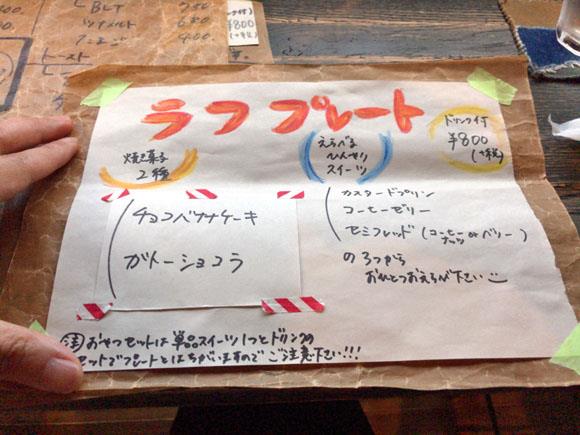 BLT 750
ツナメルト 650
400
トースト
¥800
(+税)
ラフプレート
ドリンク付
¥800
(+税)
焼き菓子
2種
えらべる
ひんやり
スイーツ
チョコバナナケーキ
ガトーショコラ
カスタードプリン
コーヒーゼリー
セミフレッド(コーヒーナッツ or ベリー)
の3つから
おひとつおえらび下さい
注 おやつセットは単品スイーツ1つとドリンクの
セットでプレートとはちがいますのでご注意下さい!!!